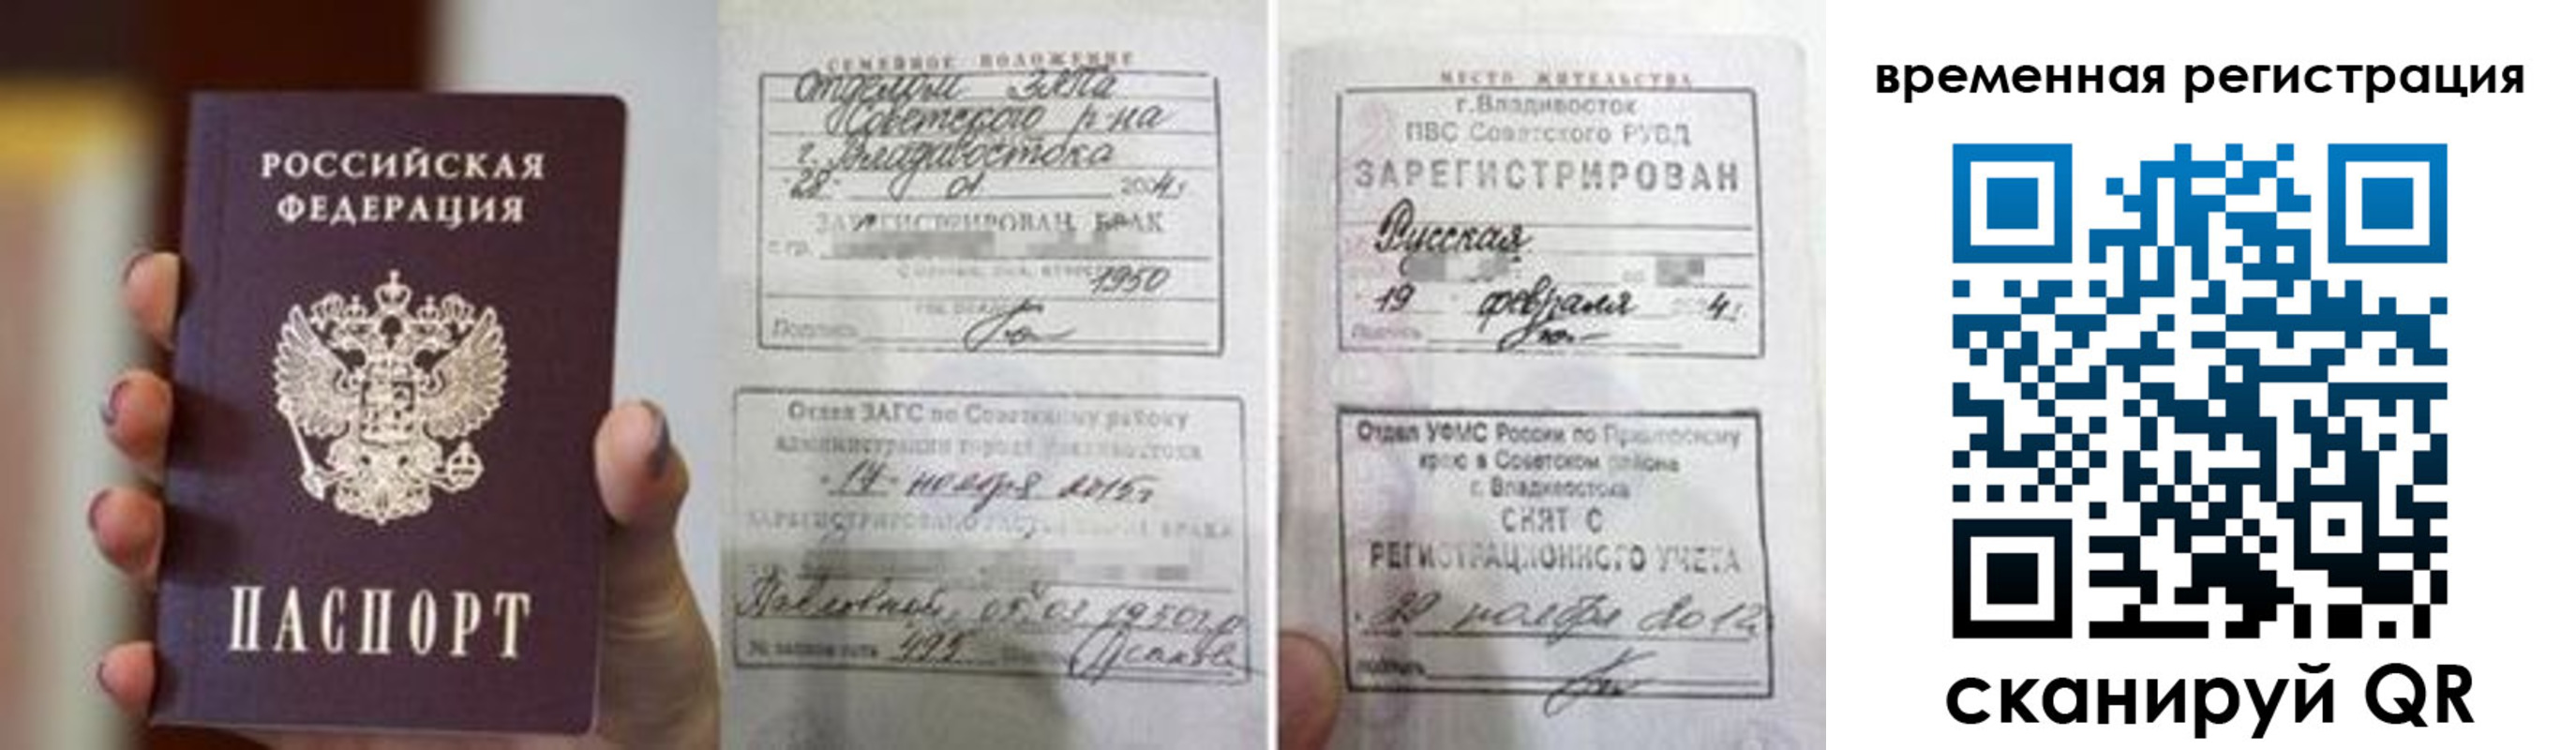 РОССИЙСКАЯ
ФЕДЕРАЦИЯ
ПАСПОРТ
СЕМЕЙНОЕ ПОЛОЖЕНИЕ
Отделом
Советского р-на
г. Владивостока
"28" 01 2004 г.
ЗАРЕГИСТРИРОВАН БРАК
с гр.
1950
Подпись
Отдел ЗАГС по Советскому району
администрации города Владивостока
"17" ноября 2015г
Павловной, 05.03.1950г.р
№ 495
МЕСТО ЖИТЕЛЬСТВА
г.Владивосток
ПВС Советского РУВД
ЗАРЕГИСТРИРОВАН
Русская
19 февраля 4г.
Подпись
Отдел УФМС России по Приморскому
краю в Советском районе
г. Владивостока
СНЯТ С
РЕГИСТРАЦИОННОГО УЧЕТА
ноября 2012
подпись
временная регистрация
сканируй QR